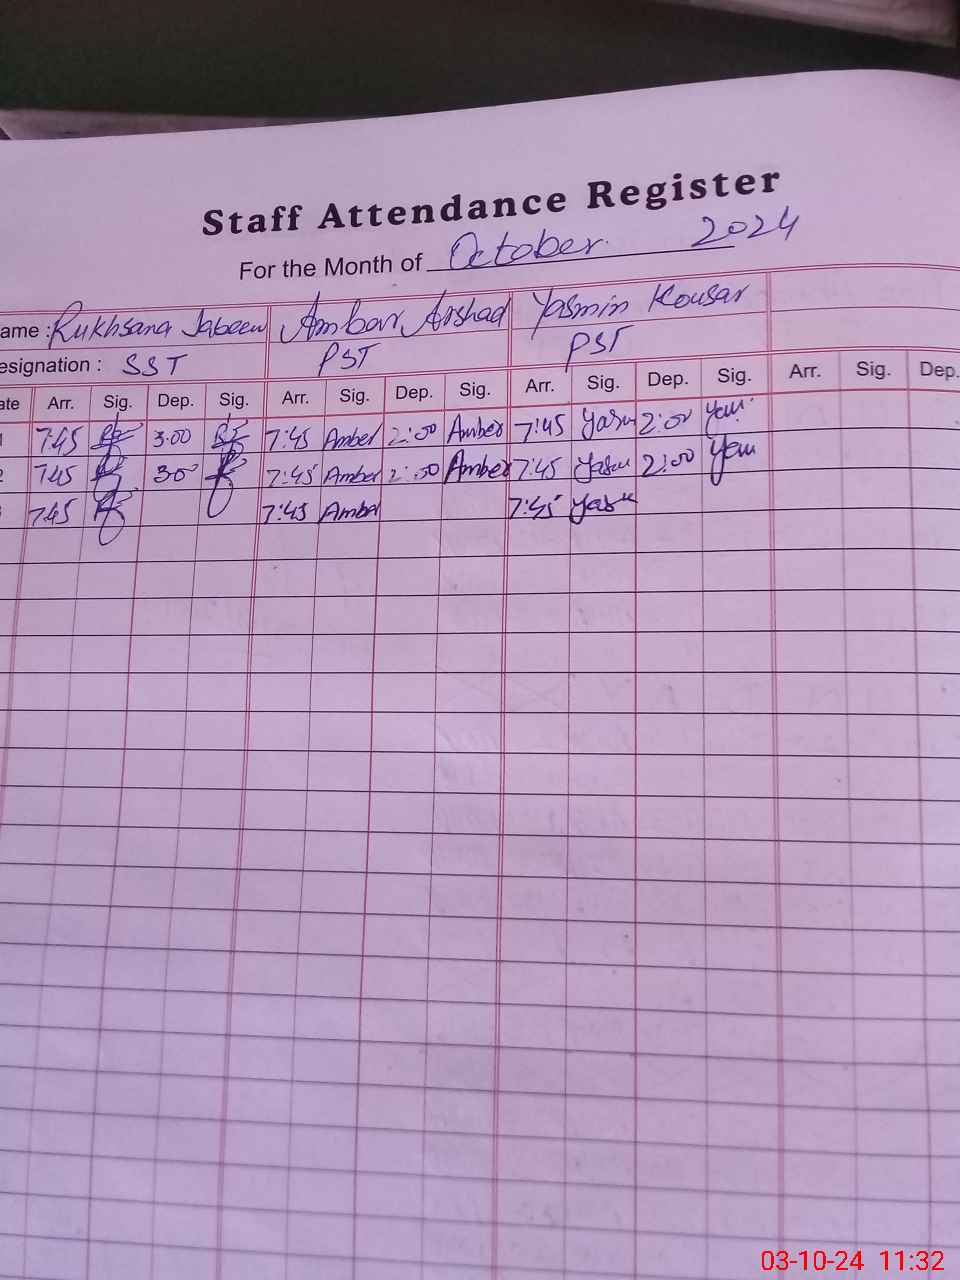 Staff Attendance Register
For the Month of October 2024
ame : Rukhsana Jabeen Ambar Arshad Yasmin Kousar
esignation : SST PST PST
ate Arr. Sig. Dep. Sig. Arr. Sig. Dep. Sig. Arr. Sig. Dep. Sig. Arr. Sig. Dep.
1 7:45 3:00 7:45 Amber 2:00 Amber 7:45 2:00
2 7:45 3:00 7:45 Amber 2:00 Amber 7:45 2:00
7:45 7:45 Amber 7:45
03-10-24 11:32